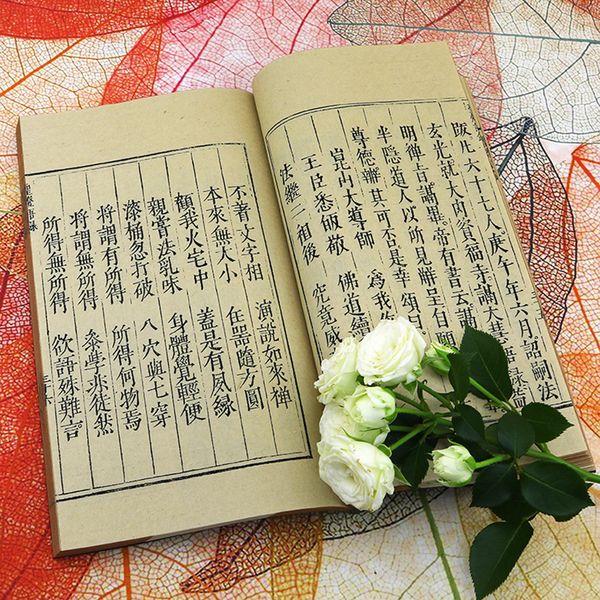 凡六十七人庚午年六月詔嗣法
玄光就大內資福寺講大慧語錄
明禪者講畢帝有書云講
半隱道人以所見辦呈白
尊德辦其可否是幸頌曰
崑內大導師 為我
王臣悉皈敬 佛道續
法繼二相後 究竟威
不著文字相 演說如來禪
本來無大小 任器隨方圓
顧我火宅中 蓋是有夙緣
親嘗法乳味 身體覺輕便
漆桶忽打破 八穴與七穿
將謂有所得 所得何物焉
將謂無所得 叅學亦徒然
所得無所得 欲諍殊難言